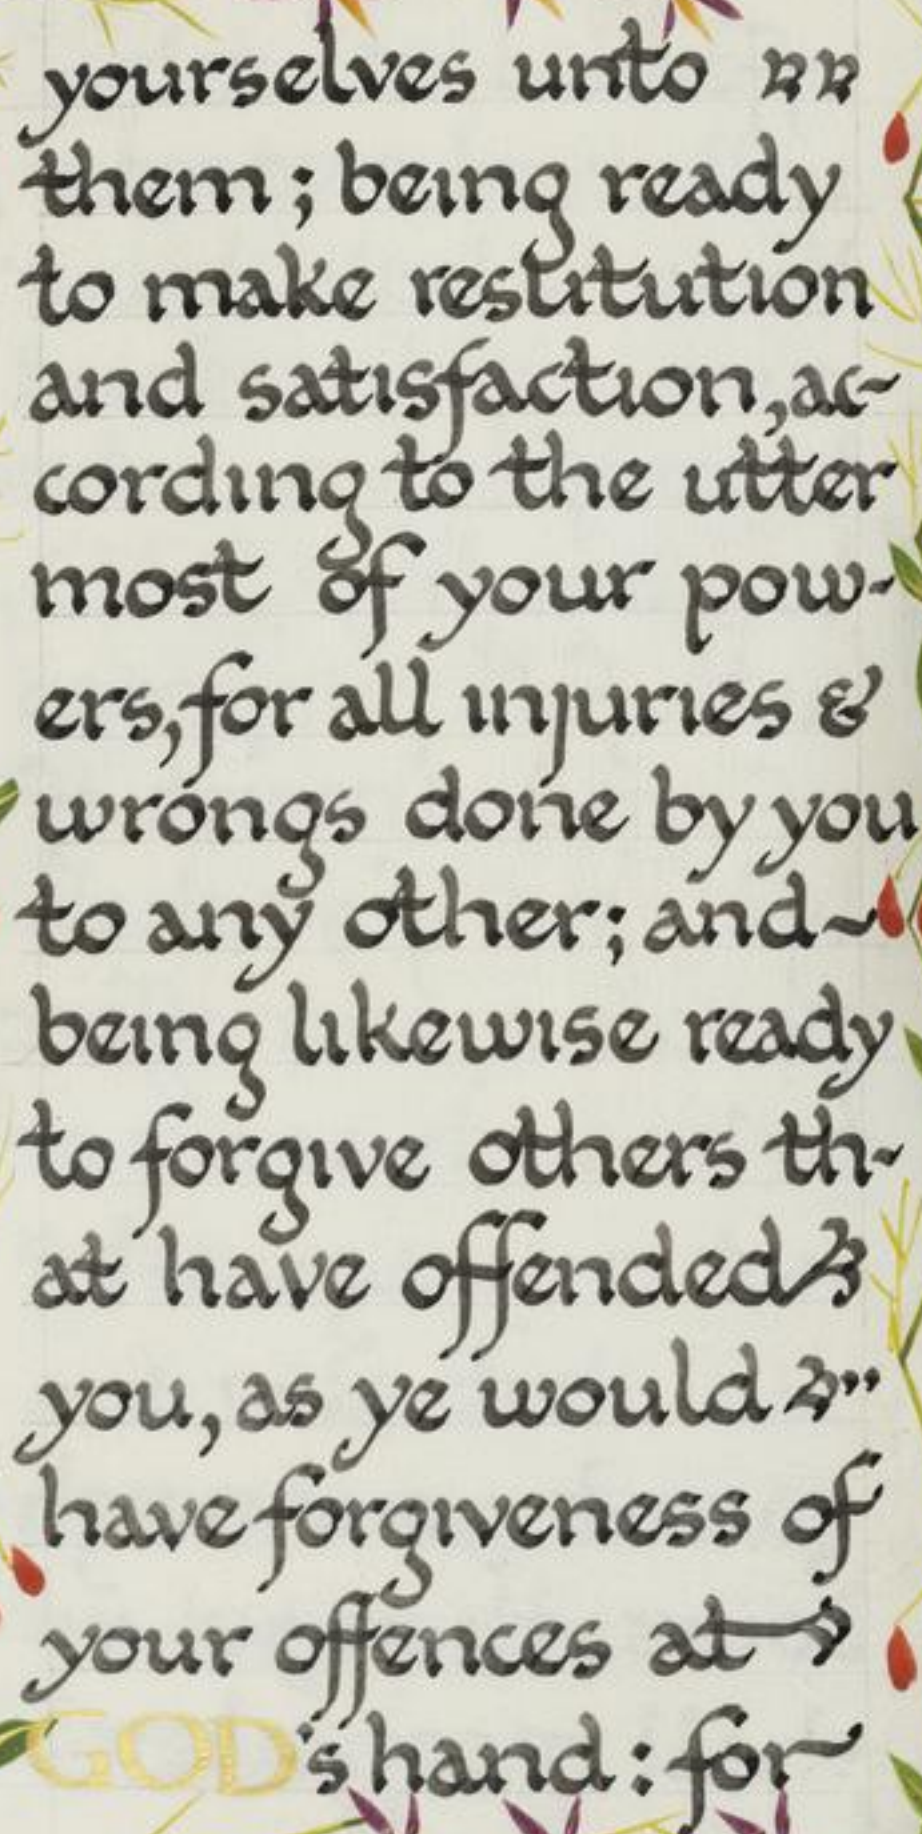 yourselves unto
them; being ready
to make restitution
and satisfaction, ac-
cording to the utter
most of your pow-
ers, for all injuries &
wrongs done by you
to any other; and
being likewise ready
to forgive others th-
at have offended
you, as ye would
have forgiveness of
your offences at
GOD's hand: for